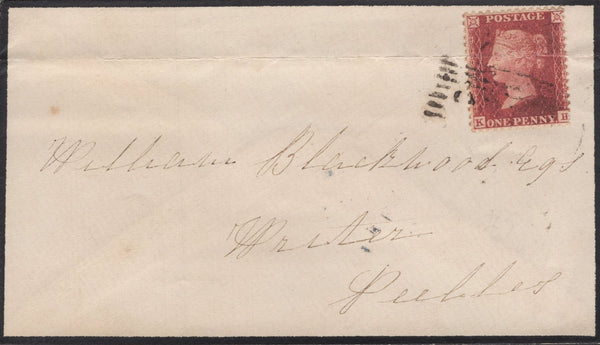 POSTAGE
K ONE PENNY H
William Blackwood Esqr
Writer
Peebles